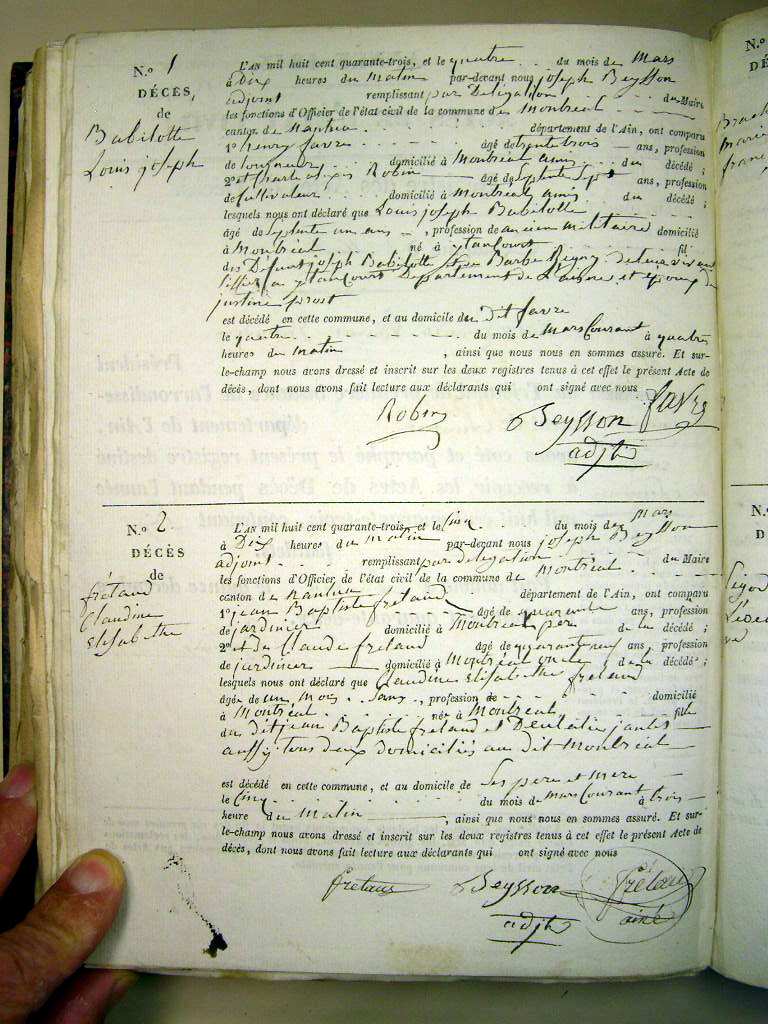 N.º 1
DÉCÈS,
de
Babilotte
Louis joseph
L'AN mil huit cent quarante-trois, et le quatre du mois de Mars
à dix heures du Matin par-devant nous joseph Beysson
adjoint remplissant par Delegation du Maire
les fonctions d'Officier de l'état civil de la commune de Montreal
canton de département de l'Ain, ont comparu
1º henry favre âgé de trente trois ans, profession
de domicilié à Montreal amis du décédé ;
2º et Robin âgé de Septente Sept ans, profession
de Cultivateur domicilié à Montreal amis du décédé ;
lesquels nous ont déclaré que Louis joseph Babilotte
âgé de Septente un ans, profession de ancien militaire domicilié
à Montreal né à fil
du Défunt joseph Babilotte et de Barbe de leur vivant
a Departement de et Epoux de
justine prost
est décédé en cette commune, et au domicile du Dit favre
le quatre du mois de Mars Courant à quatre
heures du Matin, ainsi que nous nous en sommes assuré. Et sur-
le-champ nous avons dressé et inscrit sur les deux registres tenus à cet effet le présent Acte de
décès, dont nous avons fait lecture aux déclarants qui ont signé avec nous
Robin Beysson favre
adjt
N.º 2
DÉCÈS
de
frétaud
Claudine
Elisabethe
L'AN mil huit cent quarante-trois, et le Cinq du mois de Mars
à Dix heures du Matin par-devant nous joseph Beysson
adjoint remplissant par delegation du Maire
les fonctions d'Officier de l'état civil de la commune de Montreal
canton de Nantua département de l'Ain, ont comparu
1º jean Baptiste fretaud âgé de quarante ans, profession
de jardinier domicilié à Montreal pere de la décédé ;
2º et de Claude fretaud âgé de quarante neuf ans, profession
de jardinier domicilié à Montreal oncle de la décédé ;
lesquels nous ont déclaré que Claudine Elisabethe fretaud
âgée de un Mois Sans, profession de domicilié
à Montreal née à Montreal fille
du dit jean Baptiste fretaud et
aussy tous deux domiciliés au dit Montreal
est décédé en cette commune, et au domicile de Ses pere et Mere
le Cinq du mois de Mars Courant à trois
heure du Matin, ainsi que nous nous en sommes assuré. Et sur-
le-champ nous avons dressé et inscrit sur les deux registres tenus à cet effet le présent Acte de
décès, dont nous avons fait lecture aux déclarants qui ont signé avec nous
fretaud Beysson frétaud
adjt ainé